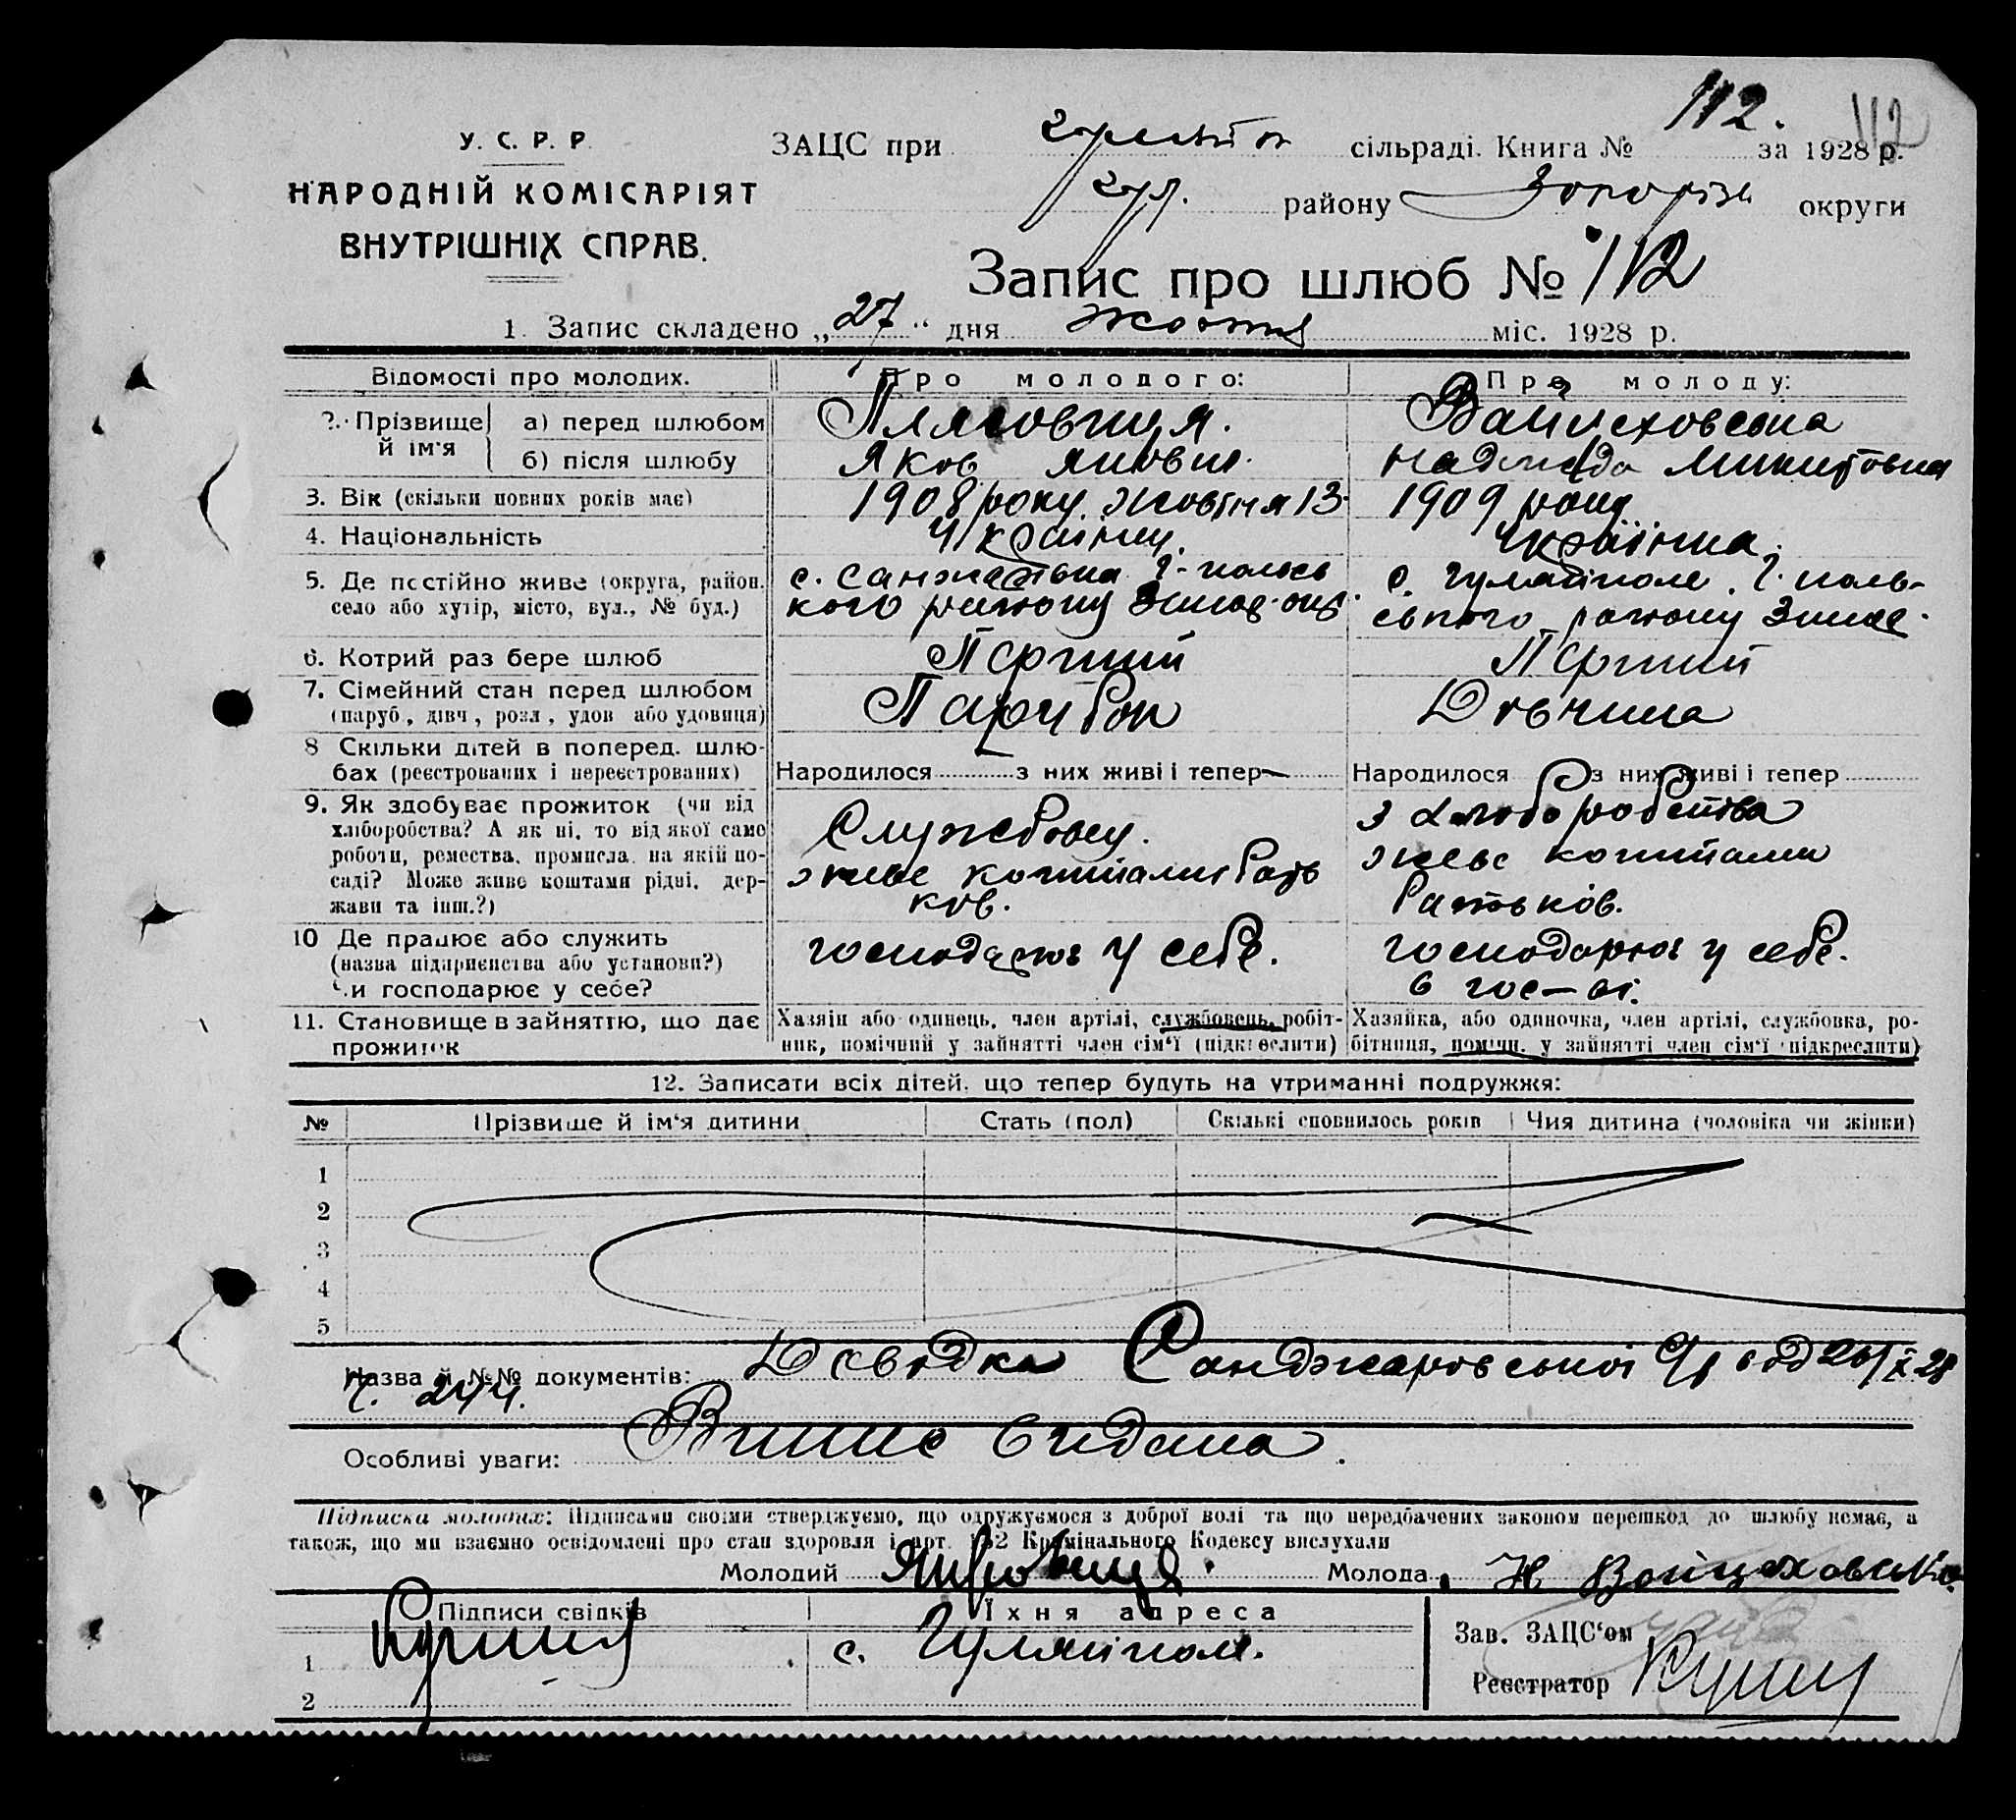 112.
112
У. С. Р. Р.
НАРОДНІЙ КОМІСАРІЯТ
ВНУТРІШНІХ СПРАВ.
ЗАЦС при сільраді. Книга № за 1928 р.
району округи
Запис про шлюб № 112
1. Запис складено „27“ дня жовтня міс. 1928 р.
Відомості про молодих. Про молодого: Про молоду:
2. Прізвище й ім'я а) перед шлюбом
б) після шлюбу
Яков
Надежда
3. Вік (скільки повних років має) 1908 року жовтня 13. 1909 року
4. Національність Українец. Українка.
5. Де постійно живе (округа, район.
село або хутір, місто, вул., № буд.)
кого району
с. Гуляйполе
району
6. Котрий раз бере шлюб Перший Перший
7. Сімейний стан перед шлюбом
(паруб., дівч., розл., удов або удовиця) Парубок Дівчина
8 Скільки дітей в поперед. шлю-
бах (реєстрованих і нереєстрованих) Народилося з них живі і тепер — Народилося з них живі і тепер
9. Як здобуває прожиток (чи від
хліборобства? А як ні, то від якої саме
роботи, ремества, промисла, на якій по-
саді? Може живе коштами рідні, дер-
жави та інш.?)
Службовец.
живе коштами бать
ков.
з хлеборобства
живе коштами
батьков.
10 Де працює або служить
(назва підприємства або установи?)
Чи господарює у себе?
господарює у себе.
господарює у себе.
в гос—ві.
11. Становище в зайняттю, що дає
прожиток
Хазяїн або одинець, член артілі, службовець, робіт-
ник, помічний у зайнятті член сім'ї (підкреслити)
Хазяйка, або одиночка, член артілі, службовка, ро-
бітниця, помічн. у зайнятті член сім'ї (підкреслити)
12. Записати всіх дітей, що тепер будуть на утриманні подружжя:
№ Прізвище й ім'я дитини Стать (пол) Скількі сповнилось років Чия дитина (чоловіка чи жінки)
1
2
3
4
5
Назва й №№ документів: Довідка Санджаровської С/р від 26/X 28
Ч. 244.
Особливі уваги: Випис видана.
Підписка молодих: Підписами своїми стверджуємо, що одружуємося з доброї волі та що передбачених законом перешкод до шлюбу немає, а
також, що ми взаємно освідомлені про стан здоровля і арт. 152 Кримінального Кодексу вислухали
Молодий Молода Н Войцеховська
Підписи свідків Їхня адреса
1 с. Гуляйполе.
2
Зав. ЗАЦС'ом
Реєстратор